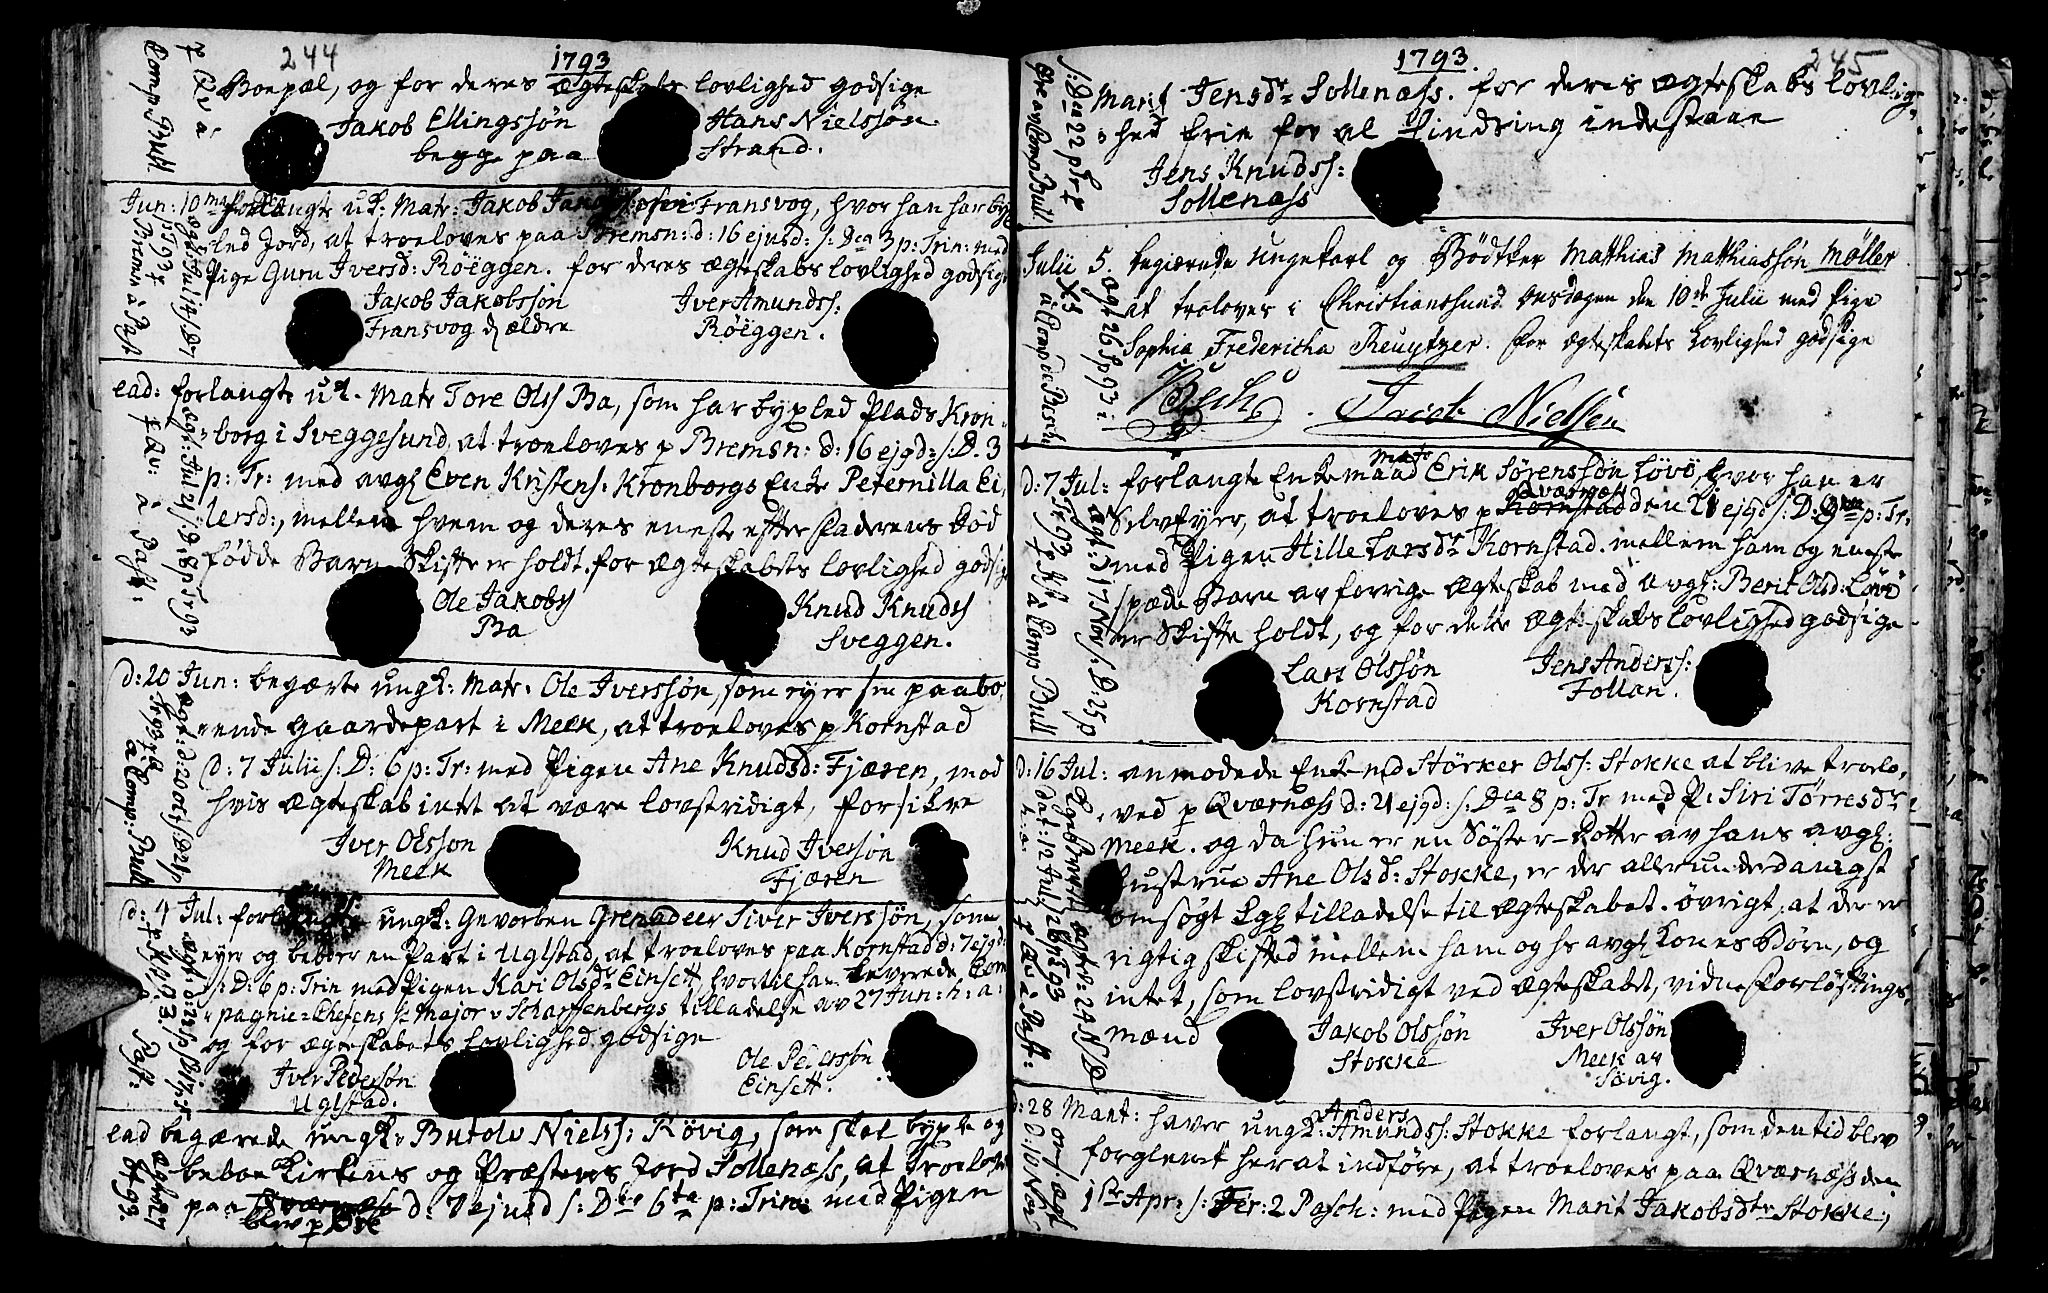 244
1793
Boepæl, og for deres ægteskabs lovlighed godsige
Jakob Ellingssøn
begge paa
Hans Nielssøn
Strand.
Jun: 10 forlangte uk: Matr: Jakob Fransvog, hvor han har byx
led Jord, at troeloves paa Bremsn: d: 16 ejusd: s: Dca 3 p: Trin: med
Pige Guru Iversd: Röeggen. for deres ægteskabs lovlighed godsige
Jakob Jakobssön
Fransvog d. ældre
Iver Amundss:
Röeggen.
ead: forlangte uk. Matr Tore Olss Ba, som har bypled Plads Kron
borg i Sveggesund, at troeloves p Bremsn: d: 16 ejgd: s: D. 3
p: Tr: med avgl Even Kristens: Kronborgs Enke Peternilla Ei
lersd:, mellem hvem og deres eneste efter faderens Död
födde Barn Skifte er holdt. for ægteskabets lovlighed godsige
Ole Jakobss
Ba
Knud Knudss
Sveggen.
d: 20 Jun: begærte ungk: Matr: Ole Iverssøn, som ejer sin paabo
ende gaardepart i Meek, at troeloves p Kornstad
d: 7 Julii s: D: 6 p: Tr: med Pigen Ane Knudsd: Fjæren, mod
hvis ægteskab intet at være lovstridigt, forsikre
Iver Olsson
Meek
Knud Iversøn
Fjæren
d: 4 Jul: forlangte ungk: Gevorben Grenadeer Siver Iverssøn, som
ejer og beboer en Part i Uglstad, at troeloves paa Kornstad d: 7 ejgd:
s: D: 6 p: Trin med Pigen Kari Olsdr Einsett, hvortil han leverede Com
pagnie-Chefens Sr Major v Scharffenbergs tilladelse av 27 Jun: h: a:
og for ægteskabets lovlighed godsige
Iver Pedersøn
Uglstad.
Ole Pederssøn
Einsett.
ead begærede ungk: Butolv Nielss: Rövig, som skal byple og
beboe Kirkens og Præstens Jord Sollenæss, at troeloves
paa Qværnæs d: 7 ejusd s: D 6ta p: Trin: med Pigen
blev p
245
1793.
Marit Jensdr Sollenæss. for deres ægteskabs lovlig
hed frie for al hindring indestaae
Jens Knudss:
Sollenæss
Julii 5. begiærede ungekarl og Bödtker Matthias Matthiassøn Möller
at troloves i Christianssund Onsdagen den 10de Julii med Pige
Sophia Fredericha Reuytzer. for ægteskabets Lovlighed godsige
Bech
Jacob Nielsen
d: 7 Jul: forlangte Enkemand Matr Erik Sørenssøn Lövö, hvor han er
Selvejer, at troeloves p Kornstad Qværnæs den 21 ejgd s: D: p: Tr.
med Pigen Hille Larsdr Kornstad. mellem ham og eneste
spæde Barn av forrige Ægteskab med avgl: Berit Olsd: Lövö
er Skifte holdt, og for dette ægteskabs lovlighed godsige
Lars Olssøn
Kornstad
Jens Anderss:
Follan.
d: 16 Jul: anmodede Enkemd Störker Olss: Stokke at blive troelo
ved p Qværnæss d: 21 ejgd: s: Dca 8 p: Tr med P: Siri Törresdr
Meek. og da hun er en Söster-Dotter av hans avgl:
Hustrue Ane Olsd: Stokke, er der allerunderdanigst
omsøgt Kgl tilladelse til ægteskabet. övrigt, at der er
rigtig skifted mellem ham og hs avgl Kones Børn, og
intet, som lovstridigt ved ægteskabet, vidne forlöftnings
mænd
Jakob Olssøn
Stokke
Iver Olssøn
Meek av
Søvig.
d: 28 Mart: haver ungk: Anders Amundss: Stokke forlangt, som den tid blev
forglemt her at indføre, at troeloves paa Qværnæss den
1ste Apr: s: Fer: 2 Pasch: med Pigen Marit Jakobsdtr Stokke,